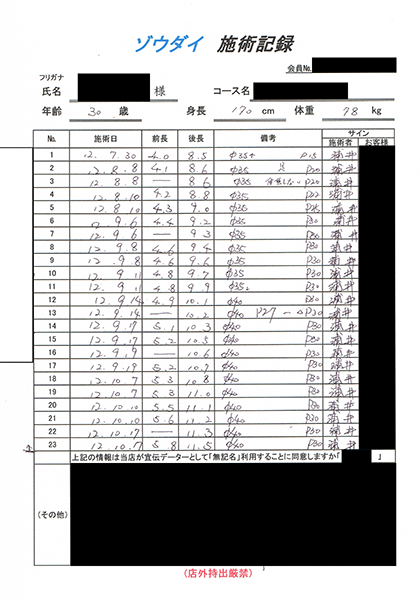 ゾウダイ 施術記録
会員No.
フリガナ
氏名 様 コース名
年齢 30 歳 身長 170 cm 体重 78 kg
No. 施術日 前長 後長 備考 サイン
施術者 お客様
1 12. 7. 30 4.0 8.5 φ35+ P15 浦井
2 12. 8. 8 4.1 8.6 φ35 P20 浦井
3 12. 8. 8 — 8.6 φ35 P20 浦井
4 12. 8. 10 4.2 8.8 φ35 P22 浦井
5 12. 8. 10 4.3 9.0 φ35 P25 浦井
6 12. 9. 6 4.4 9.2 φ35 P30 浦井
7 12. 9. 6 — 9.3 φ35 P30 浦井
8 12. 9. 8 4.6 9.4 φ35 P30 浦井
9 12. 9. 8 4.6 9.6 φ35 P30 浦井
10 12. 9. 11 4.8 9.7 φ35 P30 浦井
11 12. 9. 11 4.8 9.9 φ35 P30 浦井
12 12. 9. 14 4.9 10.1 φ40 P30 浦井
13 12. 9. 14 — 10.2 φ40 P27 → P30 浦井
14 12. 9. 17 5.1 10.3 φ40 P30 浦井
15 12. 9. 17 5.2 10.5 φ40 P30 浦井
16 12. 9. 19 — 10.6 φ40 P30 浦井
17 12. 9. 19 5.2 10.7 φ40 P30 浦井
18 12. 10. 7 5.3 10.8 φ40 P30 浦井
19 12. 10. 7 5.3 11.0 φ40 P30 浦井
20 12. 10. 10 5.5 11.1 φ40 P30 浦井
21 12. 10. 10 5.6 11.2 φ40 P30 浦井
22 12. 10. 17 — 11.3 φ40 P30 浦井
23 12. 10. 17 5.8 11.5 φ40 P30 浦井
上記の情報は当店が宣伝データーとして「無記名」利用することに同意しますか「 」
(その他)
(店外持出厳禁)